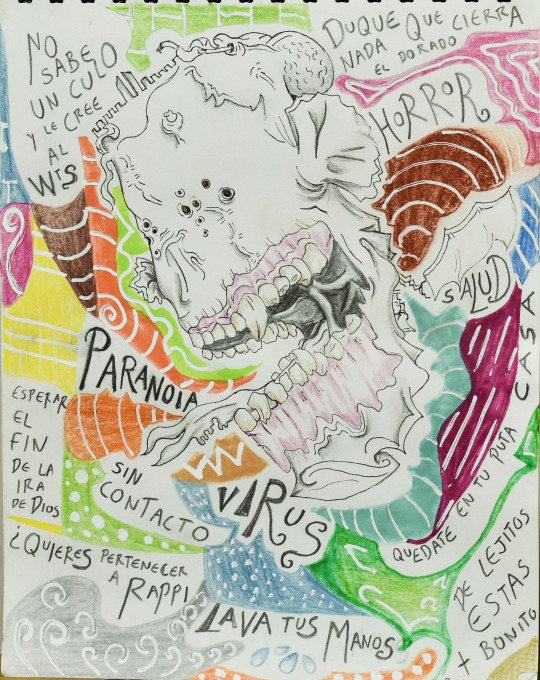 NO
SABE
UN CULO
Y LE CREE
AL
WIS
DUQUE QUE CIERRA
NADA
EL DORADO
HORROR
SALUD
CASA
QUEDATE EN TU PUTA
PARANOIA
ESPERAR
EL
FIN
DE LA
IRA
DE DIOS
SIN
CONTACTO
VIRUS
¿QUIERES PERTENECER
A RAPPI
LAVA TUS MANOS
DE LEJITOS
ESTAS
+ BONITO